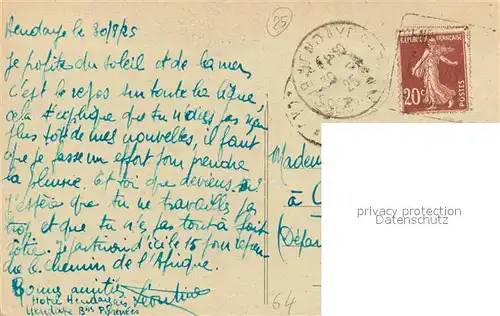 Hendaye le 30/8/25
Je profite du soleil et de la mer
C'est le repos sur toute la ligne,
cela t'explique que tu n'aies pas
plus tôt de mes nouvelles, il faut
que je fasse un effort pour prendre
la plume. Et toi que deviens tu?
J'espère que tu ne travailles pas
trop et que tu n'es pas tout à fait
rôtie. Je partirai d'ici le 15 pour
le Chemin de l'Afrique.
Bonnes amitiés
Léontine
Hotel Hendayais
Hendaye Bses Pyrénées
25
HENDAYE
REPUBLIQUE FRANÇAISE
20c
POSTES
Madem
à
(Dépar
64
privacy protection
Datenschutz